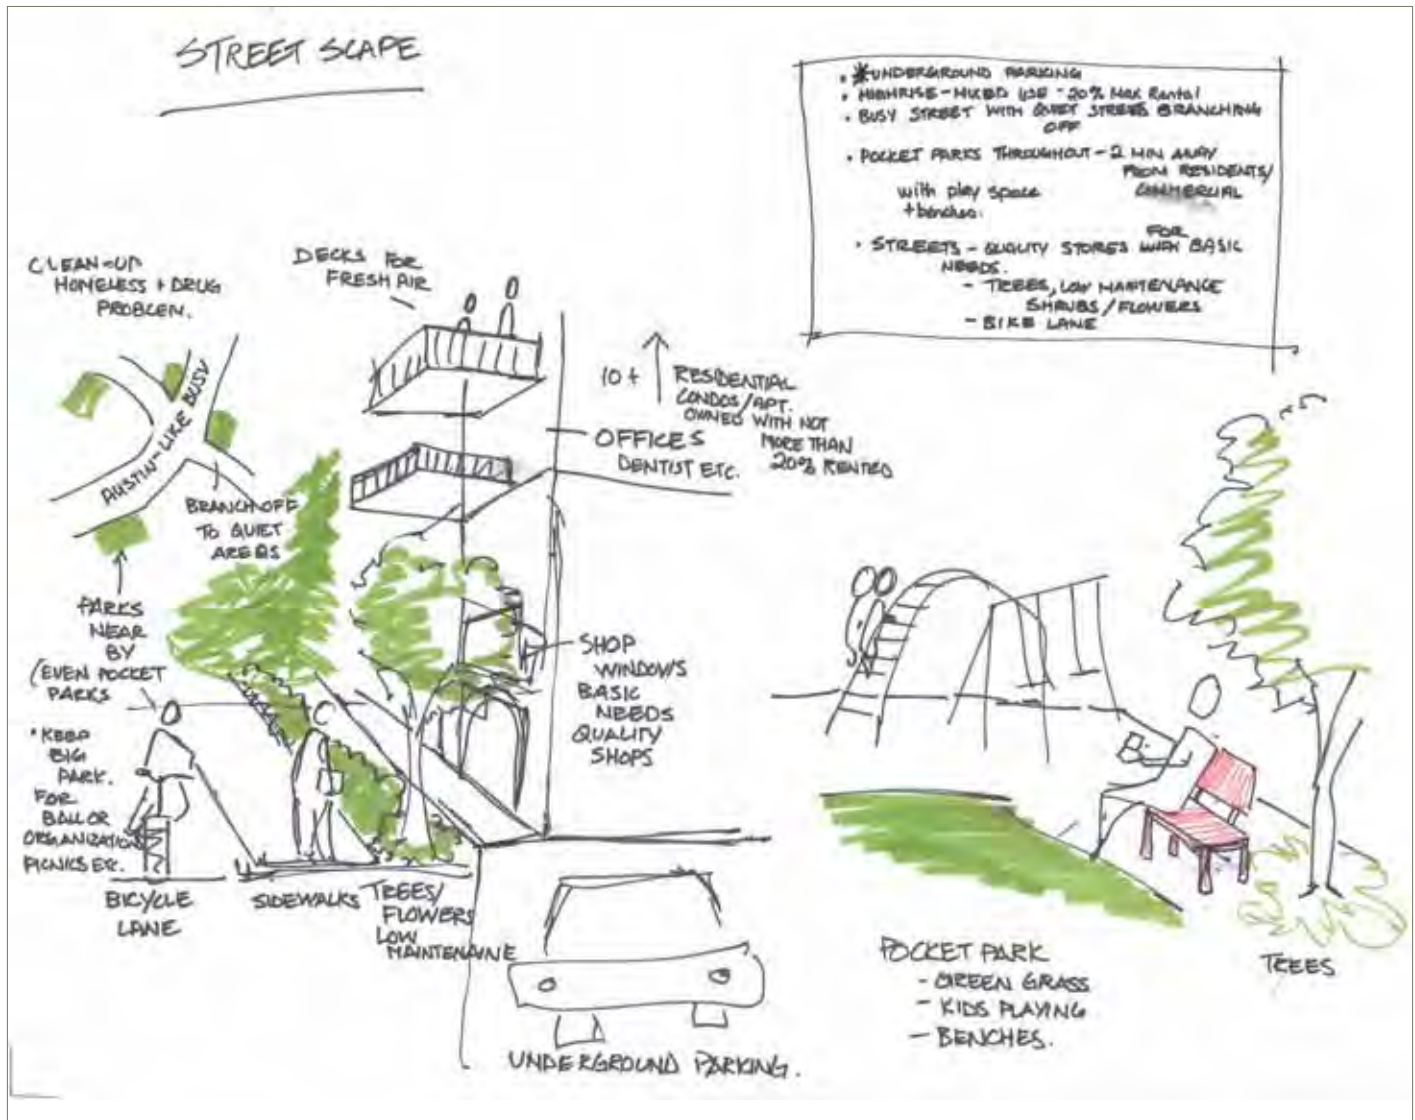 STREET SCAPE
• *UNDERGROUND PARKING
• HIGHRISE - MIXED USE - 20% MAX Rental
• BUSY STREET WITH QUIET STREETS BRANCHING
OFF
• POCKET PARKS THROUGHOUT - 2 MIN AWAY
FROM RESIDENTS/
COMMERCIAL
with play space
+ benches.
• STREETS - QUALITY STORES WITH BASIC
FOR
NEEDS.
- TREES, LOW MAINTENANCE
SHRUBS/FLOWERS
- BIKE LANE
CLEAN-UP
HOMELESS + DRUG
PROBLEM.
DECKS FOR
FRESH AIR
AUSTIN-LIKE BUSY
BRANCH OFF
TO QUIET
AREAS
PARKS
NEAR
BY
(EVEN POCKET
PARKS
• KEEP
BIG
PARK.
FOR
BALL OR
ORGANIZATION
PICNICS ETC.
10+
RESIDENTIAL
CONDOS/APT.
OWNED WITH NOT
MORE THAN
20% RENTED
OFFICES
DENTIST ETC.
SHOP
WINDOWS
BASIC
NEEDS
QUALITY
SHOPS
BICYCLE
LANE
SIDEWALKS
TREES/
FLOWERS
LOW
MAINTENAINE
UNDERGROUND PARKING.
POCKET PARK
- GREEN GRASS
- KIDS PLAYING
- BENCHES.
TREES